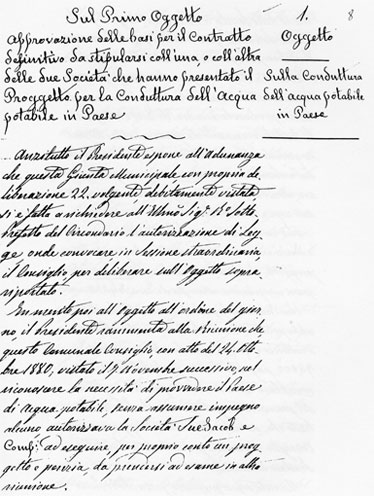 Sul Primo Oggetto
Approvazione delle basi per il Contratto
definitivo da stipularsi coll'una o coll'altra
delle due Società che hanno presentato il
Proggetto per la Conduttura dell'Acqua
potabile in Paese
1. 8
Oggetto
Sulla Conduttura
dell'acqua potabile
in Paese
Anzitutto il Presidente espone all'adunanza
che questa Giunta Municipale con propria de
liberazione 22 volgente, debitamente vistata
si è fatta a richiedere all'Illmo Sigr. Rº Sotto
Prefetto del Circondario l'autorizzazione di Leg
ge onde convocare in Sessione straordinaria
il Consiglio, per deliberare sull'Oggetto sopra
riportato.
In merito poi all'Oggetto all'ordine del gior
no il Presidente rammenta alla riunione che
questo Comunale Consiglio, con atto del 24 Otto
bre 1880, vistato il Novembre successivo, nel
riconoscere la necessità di provvedere il Paese
di Acqua potabile, senza assumere impegno
alcuno autorizzava la Società e
Compi. ad eseguire, per proprio conto un prog
getto e perizia, da prodursi ad esame in altra
riunione.